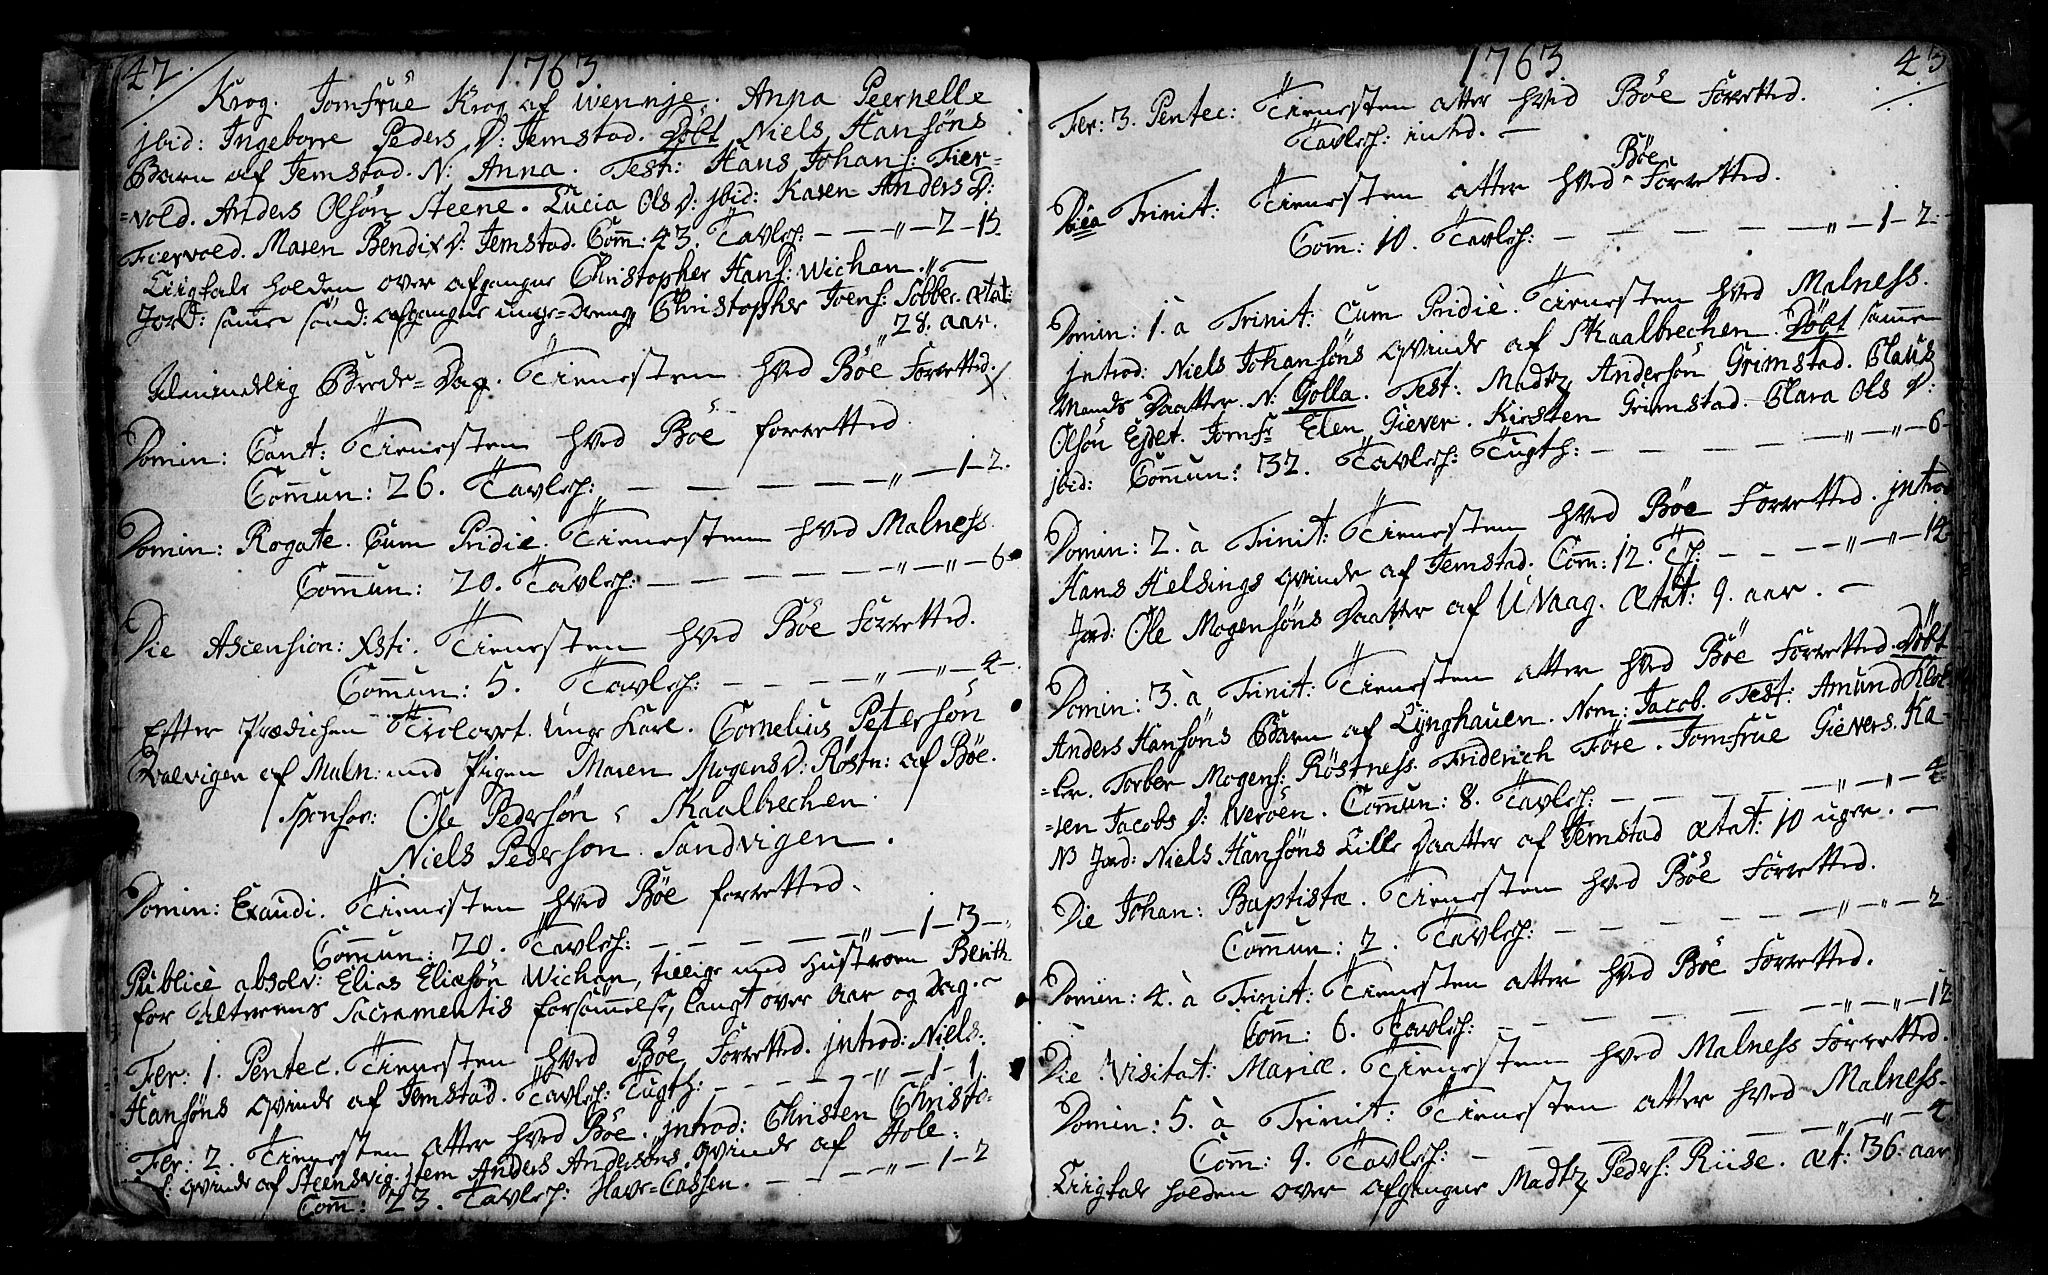 42.
1763
Krog. Jomfrue Krog af Wennje. Anna Peernelle
jbid: Ingeborre Peders D: Jemstad. Döbt Niels Hansöns
Barn af Jemstad. N: Anna. Test: Hans Johans: Fier-
=vold. Anders Olsön Steene. Lucia Ols D: jbid: Karen Anders D:
Fiervold. Maren Bendix D: Jemstad. Com̄: 43. Tavlch: — — „ — 2 — 15.
Liigtale holden over afgangne Christopher Hans: Wichan. „ —
Jord: samme sönd: afgangne unge=Dreng Christopher Joens: Sobber. ætat:
28. aar.
Almindelig Beede=Dag. Tienesten hved Böe Forretted.
Domin: Cant: Tienesten hved Böe forretted.
Com̄un: 26. Tavlch: — — — — — „ — 1 — 2.
Domin: Rogate. Cum Pridie. Tienesten hved Malness.
Com̄un: 20. Tavlch: — — — — — — „ — „ — 6
Die Ascension: Xsti. Tienesten hved Böe Forretted.
Com̄un: 5. Tavlch: — — — — „ — „ — 4 —
Effter Prædichen Trolovet Unge Karl. Cornelius Petersön
Qvalvigen af Maln: med Pigen Maren Mogens D: Röstn: af Böe.
Sponsor: Ole Pedersön Skaalbrechen.
Niels Pederson Sandvigen.
Domin: Exaudi. Tienesten hved Böe forretted.
Com̄un: 20. Tavlch: — — — — — „ — 1 — 3 —
Publicè absolv: Elias Eliæsön Wichan, tillige med Hustroen Berith
for Alterens Sacramentis forsöm̄else, langt over Aar og Dag. —
Fer: 1. Pentec. Tienesten hved Böe Forretted. jntrod: Niels
Hansöns qvinde af Jemstad. Tavlch: Tugth: — — — — „ — 1 — 1
Fer: 2. Tienesten atter hved Böe. jntrod: Christen Christo-
qvinde af Steensvig. jtem Anders Andersöns qvinde af Hole:
Com̄: 23. Tavlch: Have=Cassen. — — — „ — 1 — 2
1763.
43
Fer: 3. Pentec: Tienesten atter hved Böe Forretted.
Tavlch: inted. —
Böe
Dica Trinit: Tienesten atter hved Forretted.
Com̄: 10. Tavlch: — — — — — „ — 1 — 2 —
Domin: 1. a Trinit: Cum Pridiè. Tienesten hved Malness.
jntrod: Niels Johansöns qvinde af Skaalbrechen. Döbt sam̄e
Mands Daatter. N: Golla. Test: Madtz Andersön Grimstad. Claus
Olsön Eydet. Jomfr Elen Giever. Kirsten Grimstad. Clara Ols D:
jbid: Com̄un: 32. Tavlch: Tugth: — — — — „ — „ — 6 —
Domin: 2. à Trinit: Tienesten hved Böe Forretted. jntrod
Hans Helsings qvinde af Jemstad. Com̄: 12. T: — — — „ — „ — 14
Jord: Ole Mogensöns Daatter af UVaag. Ætat: 9. aar. —
Domin: 3. à Trinit: Tienesten atter hved Böe Forretted. Döbt
Anders Hansöns Barn af Lynghauen. Nom: Jacob. Test: Amund Klöe-
=ker. Torber Mogens: Röstness. Friderich Före. Jomfrue Gievers. Ka-
=ren Jacobs D: Weröen. Com̄un: 8. Tavlch: — — — — — „ — „ — 4
NB Jord: Niels Hansöns Lille Daatter af Jemstad ætat: 10 uger. —
Die Johan: Baptistæ. Tienesten hved Böe Forretted.
Com̄un: 2. Tavlch: — — — — — „ — „ — 2
Domin: 4. à Trinit: Tienesten atter hved Böe Forretted.
Com̄: 6. Tavlch: — — — — — — „ — „ — 12
Die Visitat: Mariæ. Tienesten hved Malness Forretted.
Domin: 5. à Trinit: Tienesten atter hved Malness.
Com̄: 9. Tavlch: — — — — — — „ — „ — 4
Liigtale holden over afgangne Madtz Peders: Riise. Æt: 36 aar